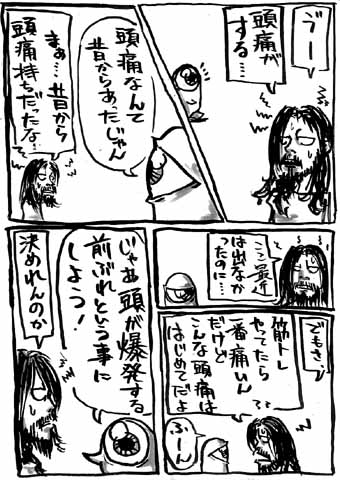 づー
頭痛が
する…
頭痛なんて
昔からあったじゃん
まぁ…昔から
頭痛持ちだったな…
ここ最近
は出なか
ったのに…
でもさ
筋トレ
やってたら
一番痛いん
だけど
こんな頭痛は
はじめてだよ
ふーん
じゃあ頭が爆発する
前ぶれという事に
しよっ!
決めれんのか